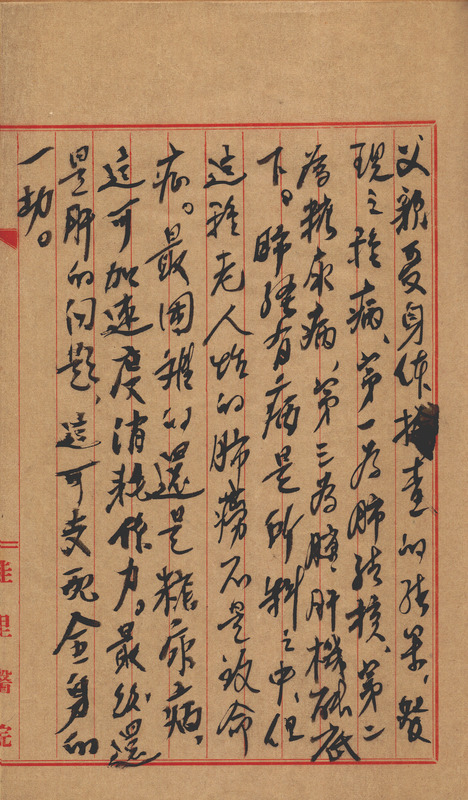 父親受身体檢查的結果、發
現三種病、第一為肺結核、第二
為糖尿病、第三為肝機能底
下。肺經有病是所料之中、但
這種老人性的肺癆不是致命
病。最困難的還是糖尿病、
這可加速度消耗体力。最後還
是肝的问題、這可支配全身的
一切。
佳里醫院